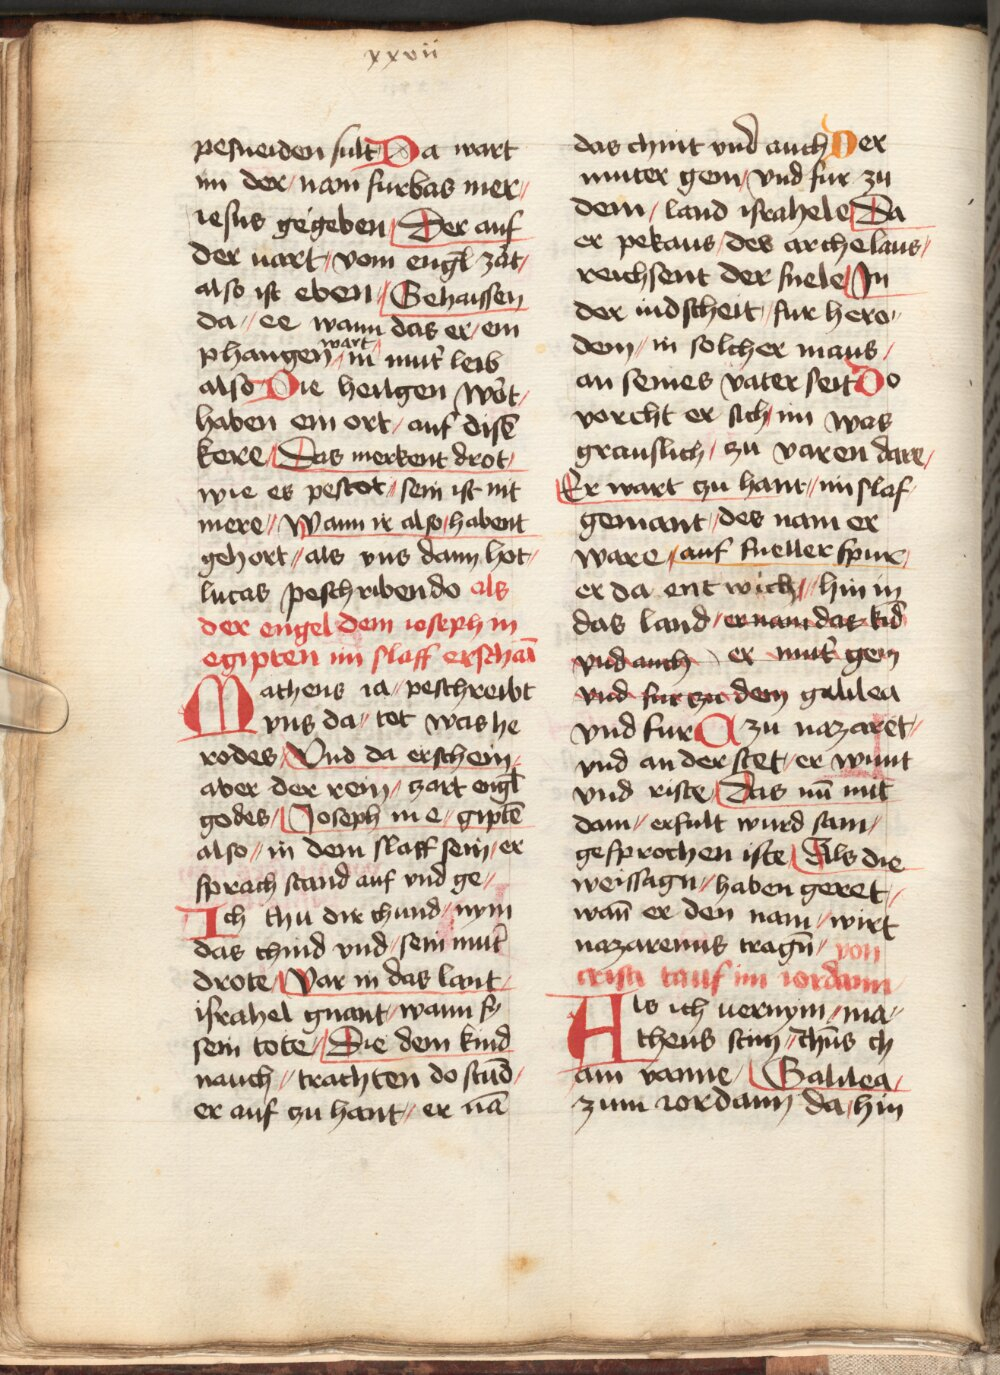 xxvii
pesneiden sult Da wart
im der / nam furbas mer //
iesus gegeben / Der auf
der uart / vom engl zart /
also ist eben / Gehaissen
da // ee wann das er / em
phangen wart / in muter leib
also Die heiligen wort /
haben ein ort / auf disk
kere / Das merkent drot /
wie es pestot / sein ist nit
mere // Wann ir also / habent
gehort // als vns dann hot /
lucas peschribendo als
der engel dem ioseph in
egipten im slaff erschain
Matheus ia // peschreibt
vns da // tot was he
rodes / Vnd da erschein /
aber der rein / zart engl
godes / Joseph in e / gipten
also // in dem slaff sein / er
sprach stand auf vnd ge //
Ich thu dir chund / nym
das chind vnd / sein muter
drote / Var in das lant /
israhel gnant / wann sy
sein tote / Die dem kind
nauch // trachten do stund /
er auf zu hant // er nam
das chint vnd auch Der
muter gern / vnd fur zu
dem / land israhele / Da
er pekaus / des archelaus /
reichsent der snele / In
der iudscheit / fur hero //
dem // in solcher maus /
an seines vater seit Do
vorcht er sich / im was
grauslich / zu varen dare /
Er wart zu hant / im slaf
gemant / des nam er
ware / auf sneller spur /
er da ent wich / hin in
das land / er nam das kid
vnd auch er muter gern
vnd fur zu dem galilea
vnd fur A zu nazaret //
vnd an der stet / er wunt
vnd riste / Das nu mit
dam // erfult wurd sam /
gesprochen iste / Als die
weissagn // haben geret /
wan er den nam // wirt
nazarenus tragn // von
cristi tauf im iordann
Als ich uernym / ma //
theus stim / ihus ch
am vanne / Galilea /
zum iordann da / hin